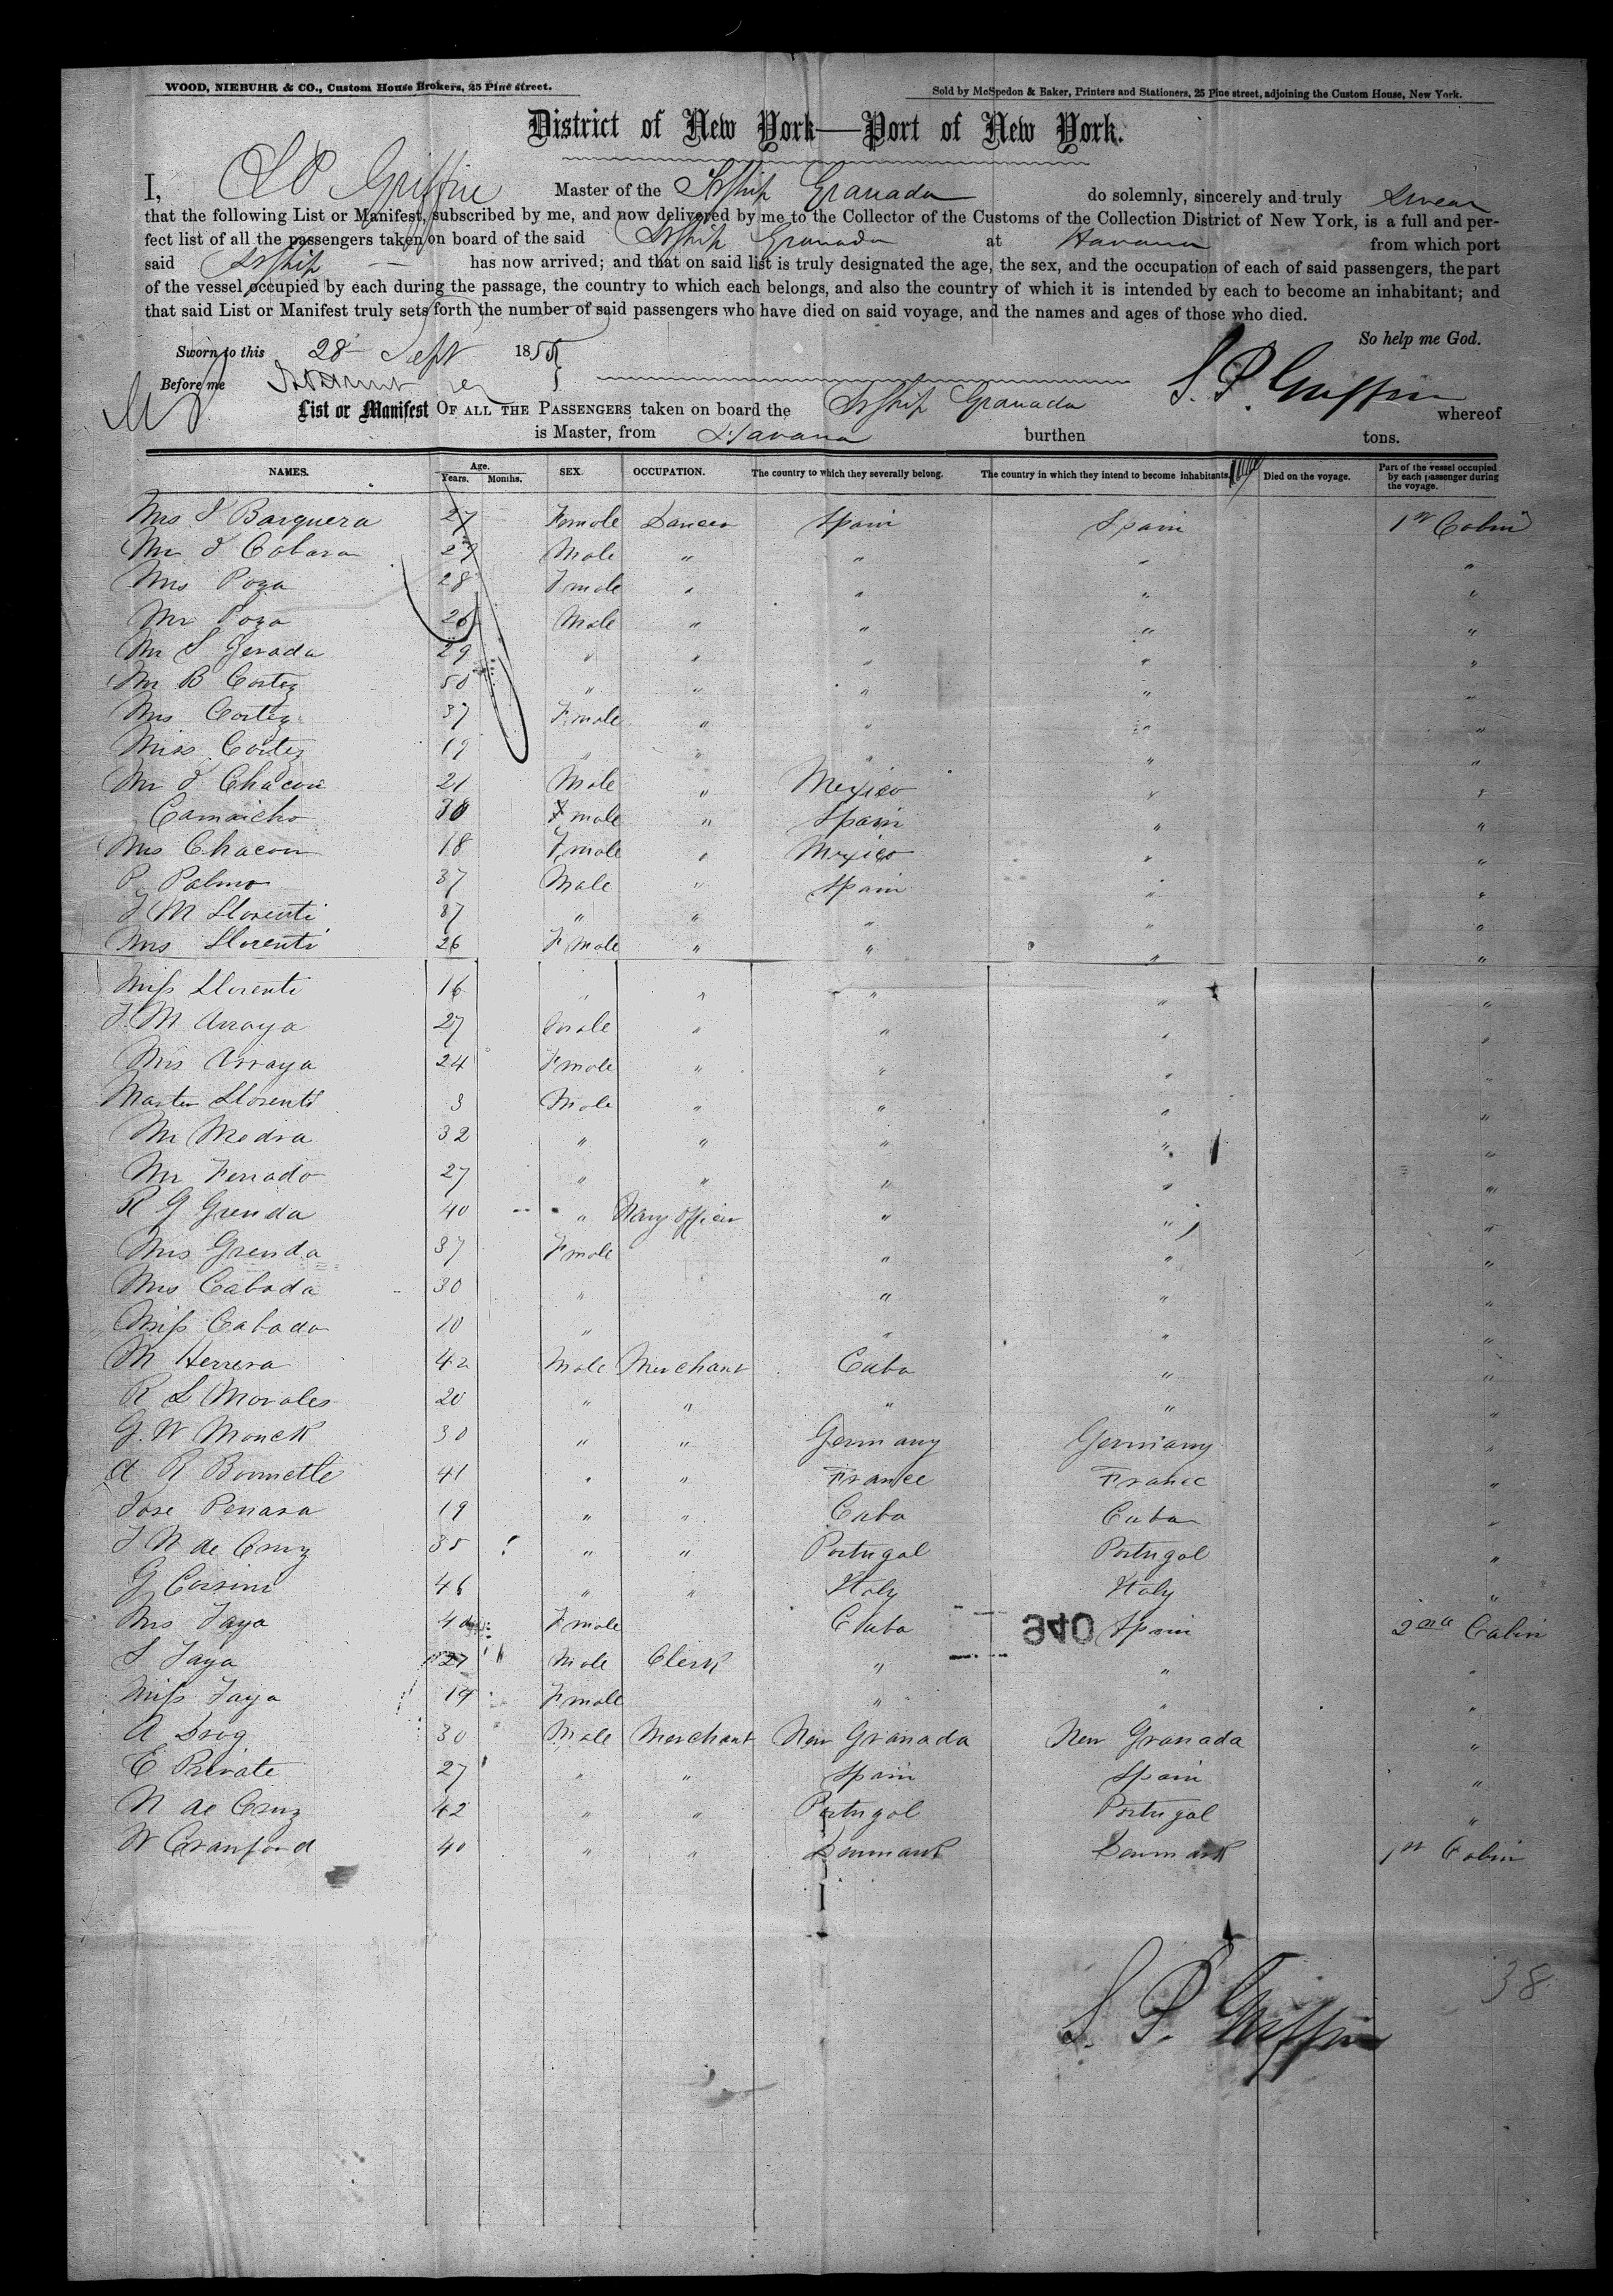 WOOD, NIEBUHR & CO., Custom House Brokers, 25 Pine street.
Sold by McSpedon & Baker, Printers and Stationers, 25 Pine street, adjoining the Custom House, New York.
District of New York—Port of New York.
I, S P Griffin Master of the StShip Granada do solemnly, sincerely and truly swear
that the following List or Manifest, subscribed by me, and now delivered by me to the Collector of the Customs of the Collection District of New York, is a full and per-
fect list of all the passengers taken on board of the said StShip Granada at Havana from which port
said StShip — has now arrived; and that on said list is truly designated the age, the sex, and the occupation of each of said passengers, the part
of the vessel occupied by each during the passage, the country to which each belongs, and also the country of which it is intended by each to become an inhabitant; and
that said List or Manifest truly sets forth the number of said passengers who have died on said voyage, and the names and ages of those who died.
So help me God.
Sworn to this 28 Sept 1855
Before me
S. P. Griffin
List or Manifest OF ALL THE PASSENGERS taken on board the StShip Granada whereof
is Master, from Havana burthen tons.
NAMES. Age. Years. Months. SEX. OCCUPATION. The country to which they severally belong. The country in which they intend to become inhabitants. Died on the voyage. Part of the vessel occupied by each passenger during the voyage.
Mrs J Barquera 27 Female Dancer Spain Spain 1st Cabin
Mr J Cobara 29 Male " " " "
Mrs Poza 28 Female " " " "
Mr Poza 26 Male " " " "
Mr S Gerada 29 " " " " "
Mr B Cortez 50 " " " " "
Mrs Cortez 37 Female " " " "
Miss Cortez 19 " " " " "
Mr J Chacon 21 Male " Mexico " "
Camaicho 30 male " Spain " "
Mrs Chacon 18 Female " Mexico " "
P Palmo 37 Male " Spain " "
J M Llorenti 37 " " " " "
Mrs Llorenti 26 Female " " " "
Miss Llorenti 16 " " " " "
J M Arraya 27 Male " " " "
Mrs Arraya 24 Female " " " "
Master Llorenti 3 Male " " " "
Mr Medra 32 " " " " "
Mr Ferrado 27 " " " " "
R G Grenda 40 " Navy Officer " " "
Mrs Grenda 37 Female " " "
Mrs Cabada 30 " " " "
Miss Cabada 10 " " " "
M Herrera 42 Male Merchant Cuba " "
R L Morales 20 " " " " "
G. W Monck 30 " " Germany Germany "
A R Bonnette 41 " " France France "
Jose Penara 19 " " Cuba Cuba "
J N de Cruz 35 " " Portugal Portugal "
G Corsini 46 " " Italy Italy "
Mrs Jaya 40 Female Cuba Spain 2nd Cabin
940
S Jaya 27 Male Clerk " " "
Miss Jaya 19 Female " " "
A Drog 30 Male Merchant New Granada New Granada "
E Private 27 " " Spain Spain "
N de Cruz 42 " " Portugal Portugal "
W Cranford 40 " " Denmark Denmark 1st Cabin
38
S. P. Griffin